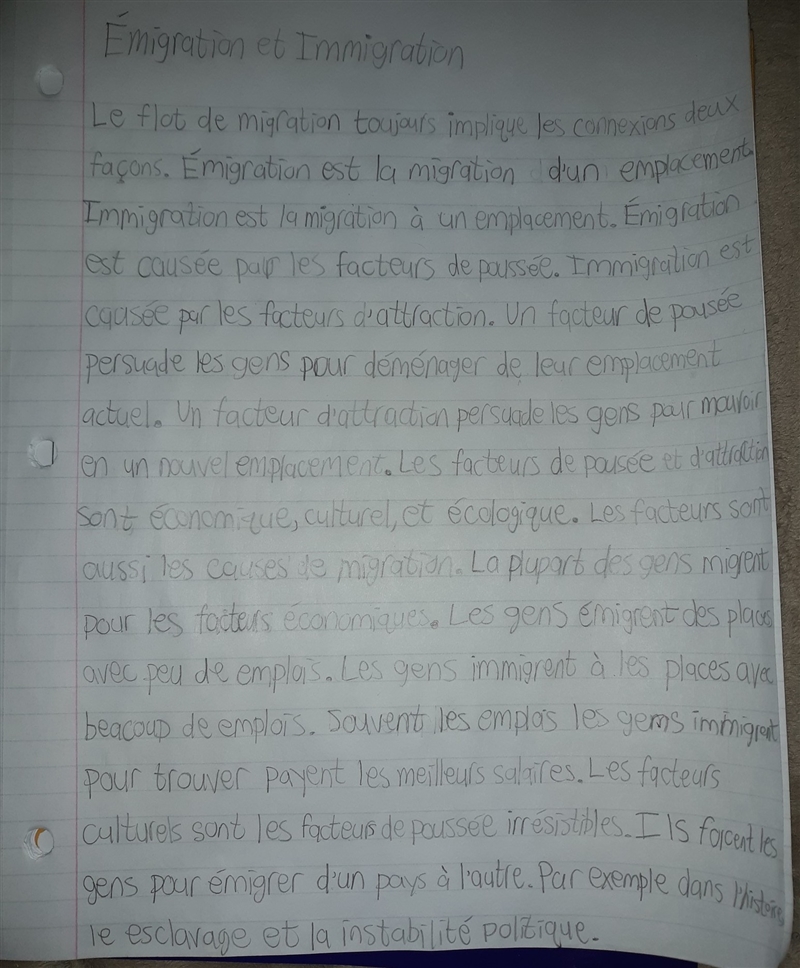 Émigration et Immigration
Le flot de migration toujours implique les connexions deux
façons. Émigration est la migration d'un emplacement.
Immigration est la migration à un emplacement. Émigration
est causée par les facteurs de poussée. Immigration est
causée par les facteurs d'attraction. Un facteur de pousée
persuade les gens pour déménager de leur emplacement
actuel. Un facteur d'attraction persuade les gens pour mouvoir
en un nouvel emplacement. Les facteurs de pousée et d'attraction
sont économique, culturel, et écologique. Les facteurs sont
aussi les causes de migration. La plupart des gens migrent
pour les facteurs économiques. Les gens émigrent des places
avec peu de emplois. Les gens immigrent à les places avec
beacoup de emplois. Souvent les emplois les gens immigrent
pour trouver payent les meilleurs salaires. Les facteurs
culturels sont les facteurs de poussée irrésistibles. Ils forcent les
gens pour émigrer d'un pays à l'autre. Par exemple dans l'histoire
le esclavage et la instabilité politique.